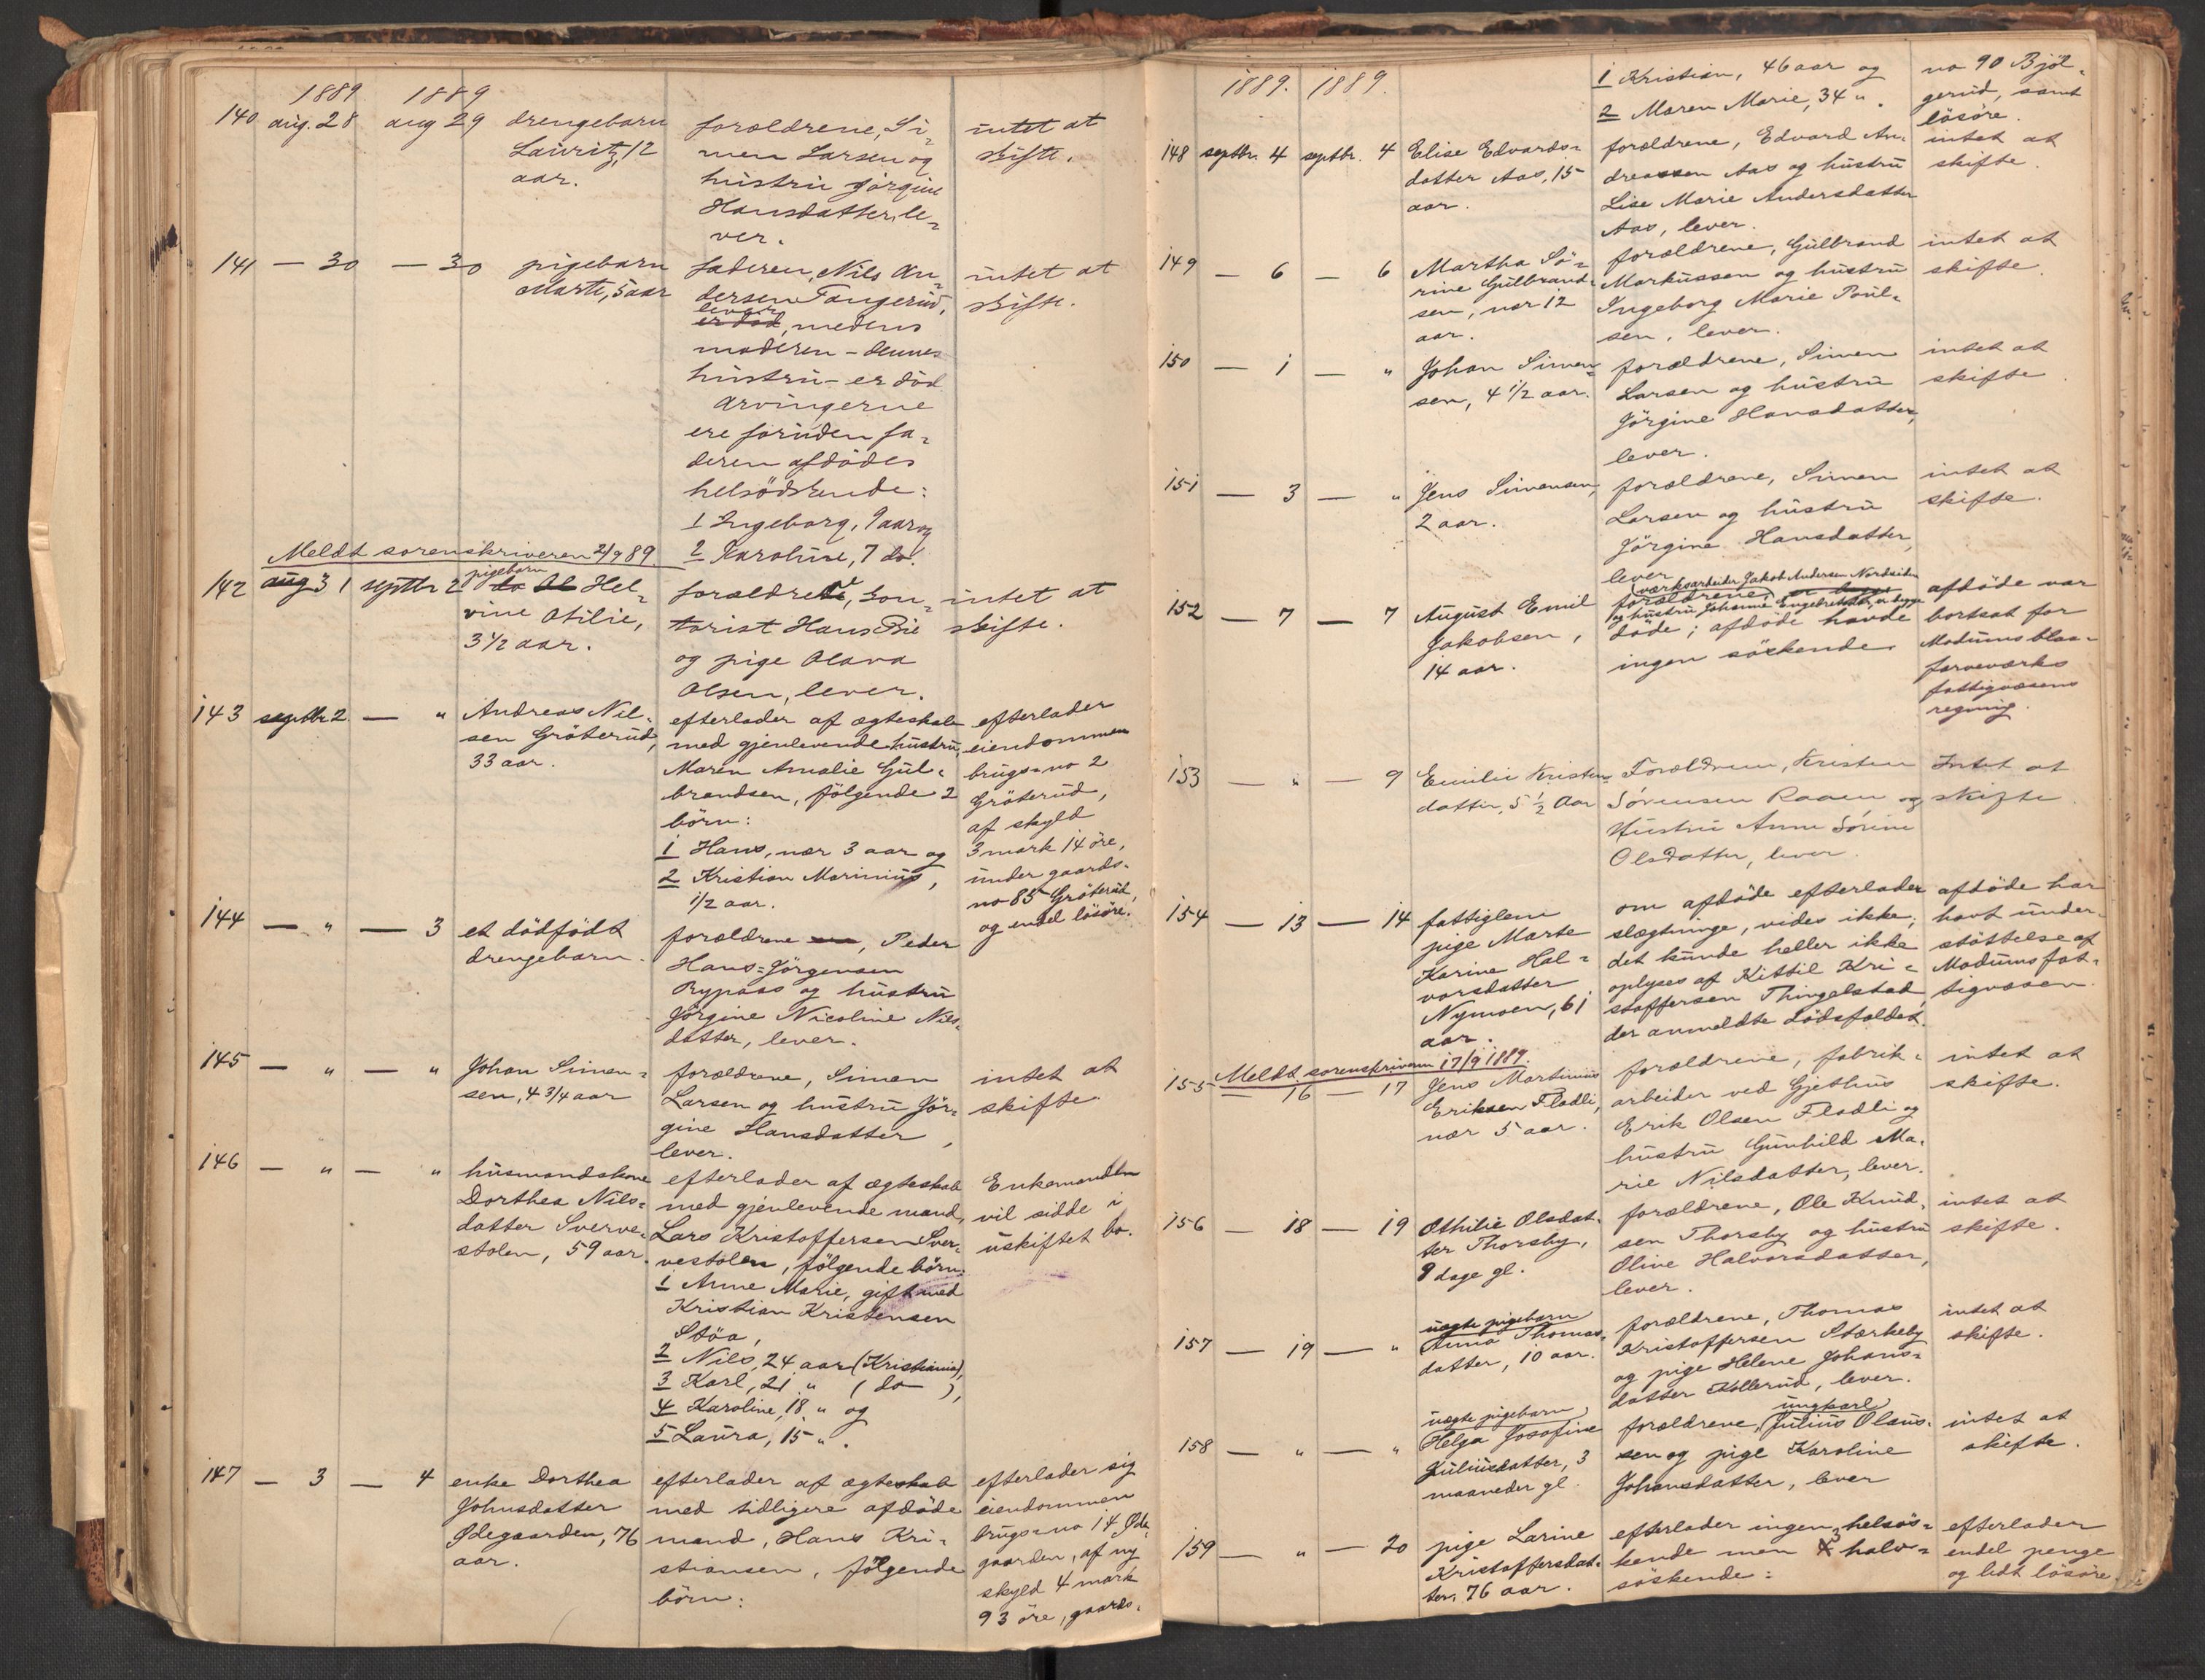 1889. 1889
140 aug. 28 aug 29 drengebarn forældrene, Si- intet at
Lauritz, 12 men Larsen og skifte.
aar. hustru Jörgine
Hansdatter, le-
ver.
141 — 30 — 30 pigebarn faderen, Nils An- intet at
Marte, 5 aar dersen Tangerud, skifte.
lever
er död, medens
moderen - dennes
hustru - er död
Arvingerne
ere foruden fa-
deren afdödes
helsödskende:
1 Ingeborg, 9 aar og
Meldt sorenskriveren 2/9 89. 2 Karoline, 7 do.
pigebarn
142 aug 31 septbr 2 do Ol Hel- forældrene, kon- intet at
vine Otilie, torist Hans Bie skifte.
3 1/2 aar. og pige Olava
Olsen, lever.
143 septbr 2. — " Andreas Nil- efterlader af ægteskab efterlader
sen Gröterud, med gjenlevende hustru, eiendommen
33 aar. Maren Amalie Gul- brugs-no 2
brandsen, fölgende 2 Gröterud,
börn: af skyld
1 Hans, nær 3 aar og 3 mark 14 öre,
2 Kristian Marinius, under gaards-
1/2 aar. no 85 Gröterud,
og endel lösöre.
144 — " — 3 et dödfödt forældrene, Peder
drengebarn. Hans=Jörgensen
Rypaas og hustru
Jörgine Nicoline Nils-
datter, lever.
145 — " — " Johan Simen- forældrene, Simen intet at
sen, 4 3/4 aar Larsen og hustru Jör- skifte.
gine Hansdatter,
lever.
146 — " — " husmandskone efterlader af ægteskab Enkemanden
Dorthea Nils- med gjenlevende mand, vil sidde i
datter Sverve- Lars Kristoffersen Sver- uskiftet bo.
stolen, 59 aar. vestolen, fölgende börn:
1 Anne Marie, gift med
Kristian Kristensen
Stöa,
2 Nils, 24 aar (Kristiania),
3 Karl, 21 " ( do ),
4 Karoline, 18 " og
5 Laura, 15 ".
147 — 3 — 4 enke Dorthea efterlader af ægteskab efterlader sig
Johnsdatter med tidligere afdöde eiendommen
Ödegaarden, 76 mand, Hans Kri- brugs-no 14 Öde-
aar. stiansen, fölgende gaarden, af ny
börn: skyld 4 mark
93 öre, gaards-
1889. 1889.
1 Kristian, 46 aar og no 90 Bjöl-
2 Maren Marie, 34 ". gerud, samt
lösöre.
148 septbr. 4 septbr. 4 Elise Edvards- forældrene, Edvard An- intet at
datter Aas, 15 dreassen Aas og hustru skifte.
aar. Lise Marie Andersdatter
Aas, lever.
149 — 6 — 6 Martha Sö- forældrene, Gulbrand intet at
rine Gulbrand- Markussen og hustru skifte.
sen, nær 12 Ingeborg Marie Poul-
aar. sen, lever.
150 — 1 — " Johan Simen- forældrene, Simen intet at
sen, 4 1/2 aar. Larsen og hustru skifte.
Jörgine Hansdatter,
lever.
151 — 3 — " Jens Simensen, forældrene, Simen intet at
2 aar. Larsen og hustru skifte.
Jörgine Hansdatter,
lever.
værksarbeider Jakob Andersen Nordsiden
152 — 7 — 7 August Emil forældrene, er begge afdöde var
og hustru Johanne Engebretsdatter, er begge
Jakobsen, döde; afdöde havde bortsat for
14 aar. ingen söskende. Modums blaa-
farveværks
fattigvæsens
regning.
153 — " — 9 Emilie Kristen- Forældrene, Kristen Intet at
datter, 5 1/2 Aar Sörensen Raaen og skifte.
Hustru Anne Sörine
Olsdatter, lever.
154 — 13 — 14 fattiglem om afdöde efterlader afdöde har
pige Marte slægtninge, vides ikke; havt under-
Karine Hal- det kunde heller ikke stöttelse af
vorsdatter oplyses af Kittil Kri- Modums fat-
Nymoen, 61 stoffersen Thingelstad, tigvæsen.
aar. der anmeldte dödsfaldet.
Meldt sorenskriveren 17/9 1889.
155 — 16 — 17 Jens Martinius forældrene, fabrik- intet at
Eriksen Fladli, arbeider ved Gjethus skifte.
nær 5 aar. Erik Olsen Fladli og
hustru Gunhild Ma-
rie Nilsdatter, lever.
156 — 18 — 19 Othilie Olsdat- forældrene, Ole Knud- intet at
ter Thorsby, sen Thorsby og hustru skifte.
9 dage gl. Olive Halvorsdatter,
lever.
uægte pigebarn
157 — 19 — " Anna Thomas- forældrene, Thomas intet at
datter, 10 aar. Kristoffersen Stærkeby skifte.
og pige Helene Johans-
datter Kollerud, lever.
uægte pigebarn ungkarl
158 — " — " Helga Josefine forældrene, Julius Olaus- intet at
Juliusdatter, 3 sen og pige Karoline skifte.
maaneder gl. Johansdatter, lever
159 — " — 20 pige Larine efterlader ingen helsös- efterlader
Kristoffersdat- kende men 3 halv- endel penge
ter, 76 aar. söskende: og lidt lösöre.